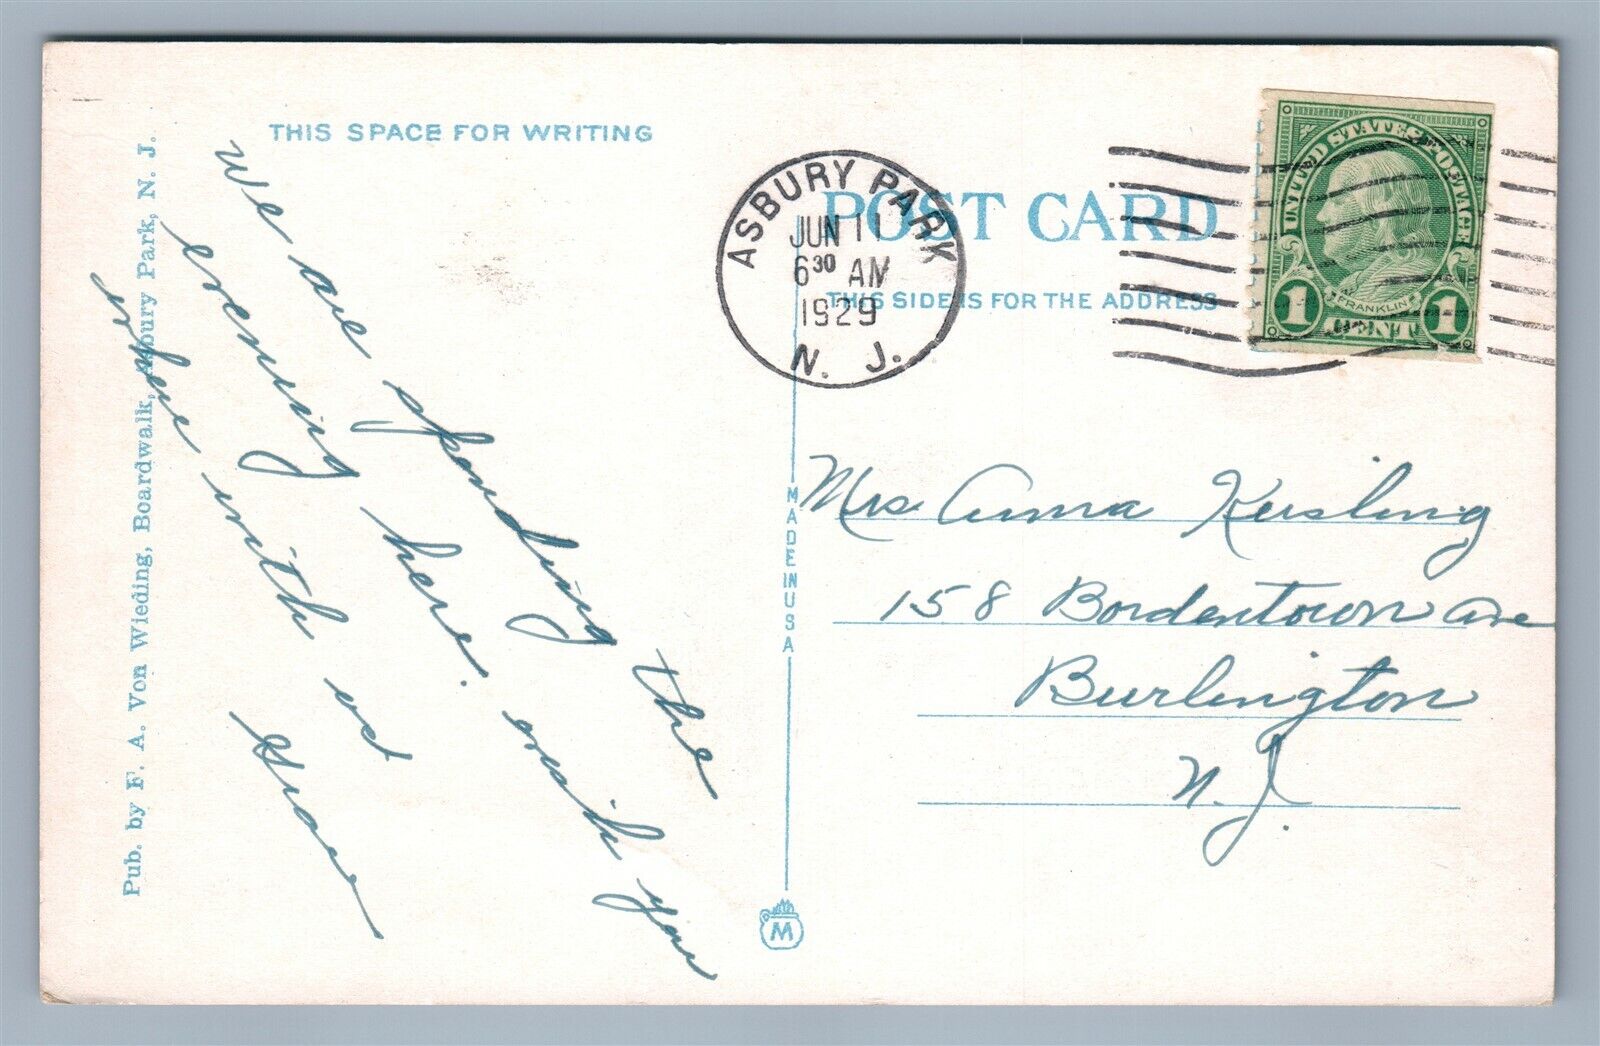 THIS SPACE FOR WRITING
We are spending the
evening here. wish you
where with us
Grace
Pub. by F. A. Von Wieding, Boardwalk, Asbury Park, N. J.
MADE IN USA
M
ASBURY PARK
JUN 11
6 30 AM
1929
N. J.
POST CARD
THIS SIDE IS FOR THE ADDRESS
UNITED STATES POSTAGE
FRANKLIN
1 CENT 1
Mrs. Anna Keisling
158 Bordentown Ave
Burlington
N. J.